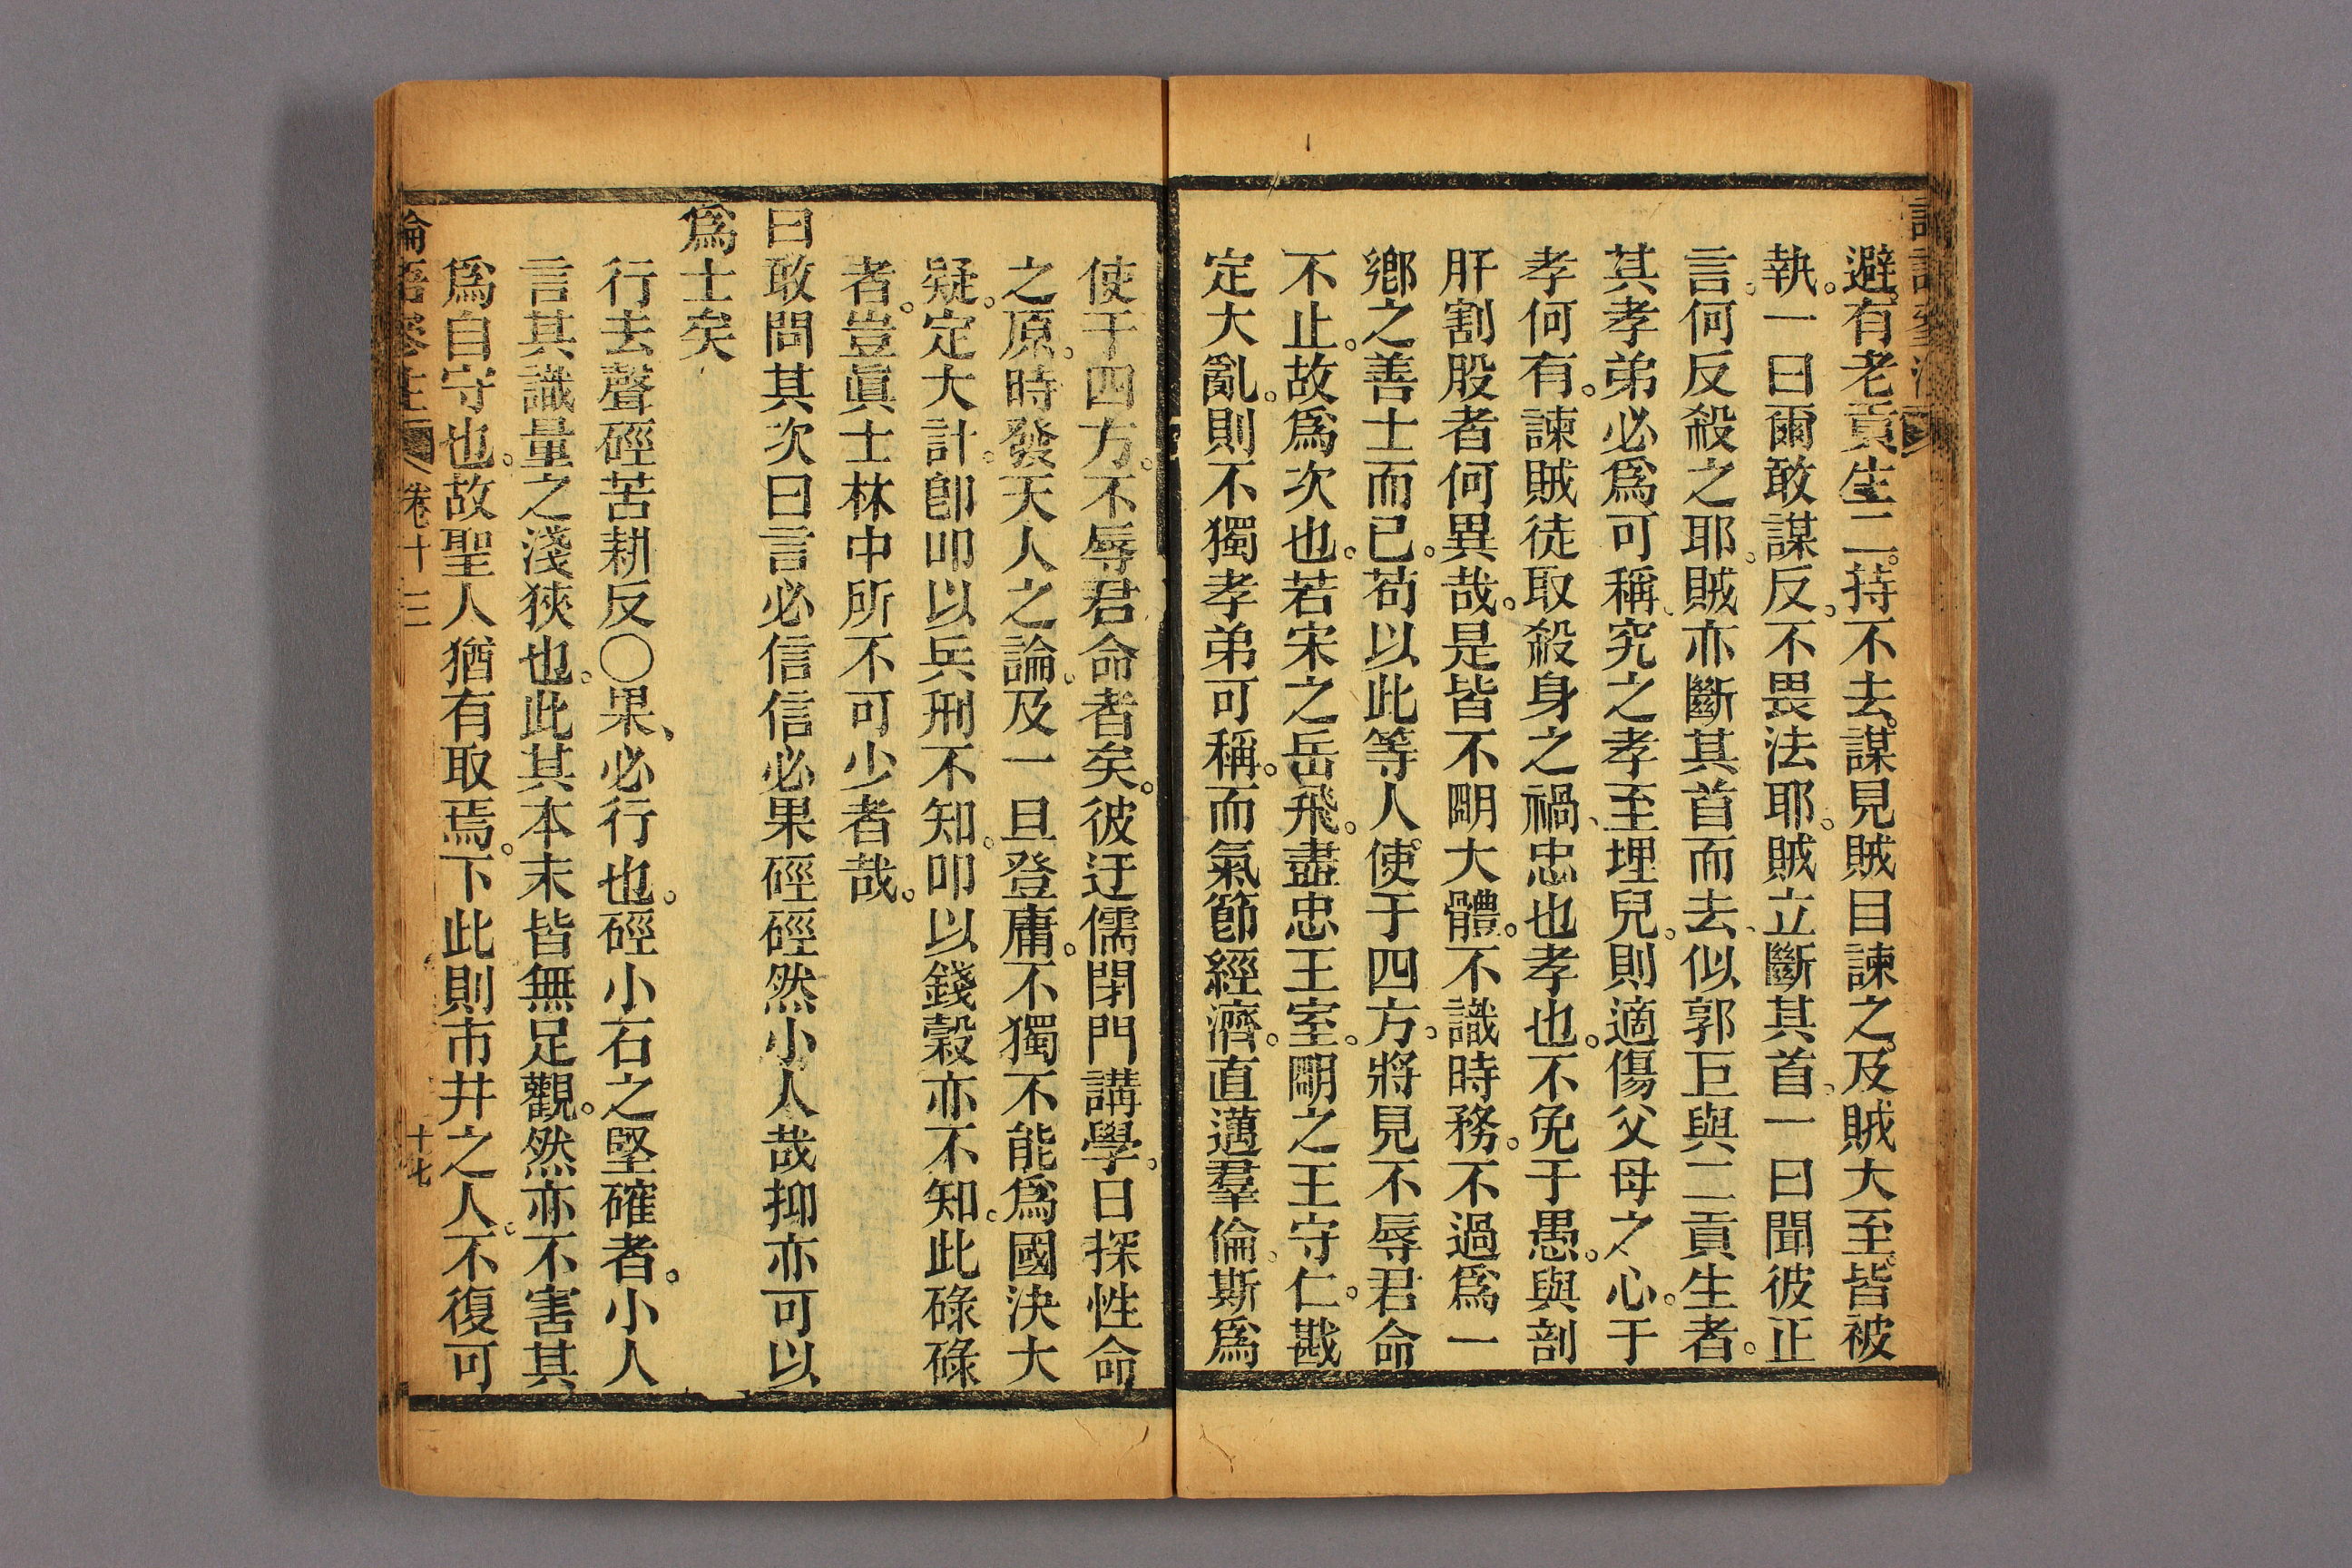 避。有老貢生二。持不去。謀見賊目諫之。及賊大至。皆被
執。一曰爾敢謀反。不畏法耶。賊立斷其首、一曰聞彼正
言。何反殺之耶。賊亦斷其首而去、似郭巨與二貢生者。
其孝弟必爲可稱、究之孝至埋兒。則適傷父母之心。于
孝何有。諫賊徒取殺身之禍、忠也孝也。不免于愚。與剖
肝割股者何異哉。是皆不明大體。不識時務。不過爲一
鄕之善士而已。苟以此等人。使于四方。將見不辱君命
不止。故爲次也。若宋之岳飛。盡忠王室。明之王守仁。戡
定大亂。則不獨孝弟可稱。而氣節經濟。直邁羣倫、斯爲
使于四方。不辱君命者矣。彼迂儒閉門講學。日探性命
之原。時發天人之論。及一旦登庸。不獨不能爲國決大
疑。定大計。卽叩以兵刑不知。叩以錢穀亦不知。此碌碌
者。豈眞士林中所不可少者哉。
曰敢問其次曰言必信信必果硜硜然小人哉抑亦可以
爲士矣
行去聲硜苦耕反○果、必行也。硜小石之堅確者。小人
言其識量之淺狹也。此其本末皆無足觀。然亦不害其
爲自守也。故聖人猶有取焉。下此則市井之人。不復可
卷十三
十七